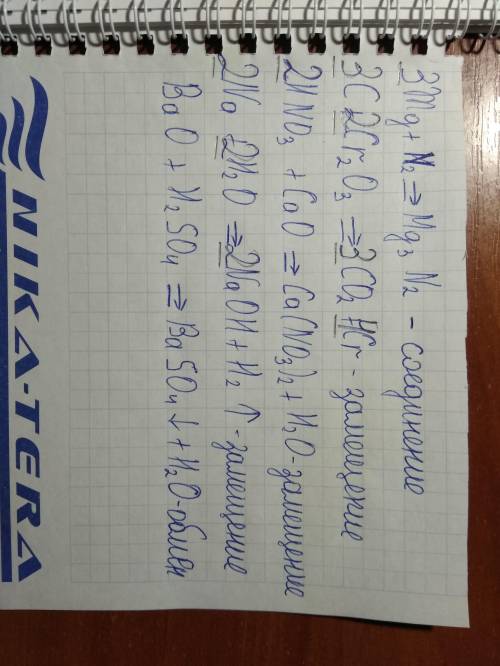 3Mg + N₂ ⇒ Mg₃N₂ - соединение
3C 2Cr₂O₃ ⇒ 3CO₂ 4Cr - замещение
2HNO₃ + CaO ⇒ Ca(NO₃)₂ + H₂O - замещение
2Na 2H₂O ⇒ 2NaOH + H₂ ↑ - замещение
BaO + H₂SO₄ ⇒ BaSO₄ ↓ + H₂O - обмен
NIKA-TERA